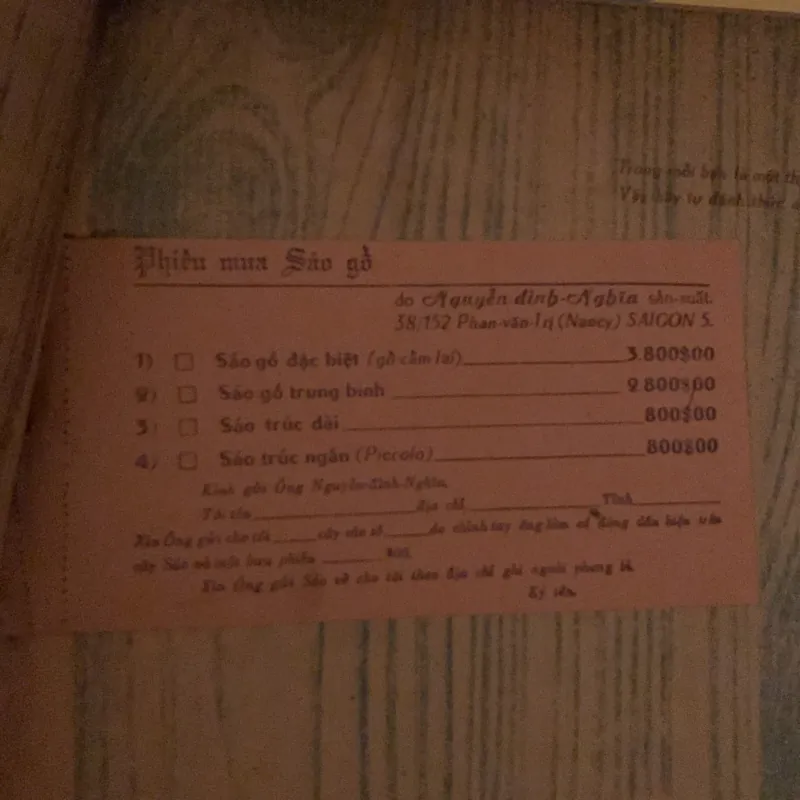 Trong mỗi bạn là một th
Vậy hãy tự đánh thức
Phiếu mua Sáo gỗ
do Nguyễn đình-Nghĩa sản-xuất.
38/152 Phan-văn-Trị (Nancy) SAIGON 5.
1) Sáo gỗ đặc biệt (gỗ cẩm lai) 3.800$00
2) Sáo gỗ trung bình 2.800$00
3) Sáo trúc dài 800$00
4) Sáo trúc ngắn (Piccolo) 800$00
Kính gửi Ông Nguyễn-Đình-Nghĩa.
Tôi tên địa chỉ Tỉnh
Xin Ông gửi cho tôi cây sáo số do chính tay ông làm có đóng dấu hiệu trên
cây Sáo và một bưu phiếu
Xin Ông gửi Sáo về cho tôi theo địa chỉ ghi ngoài phong bì.
Ký tên.